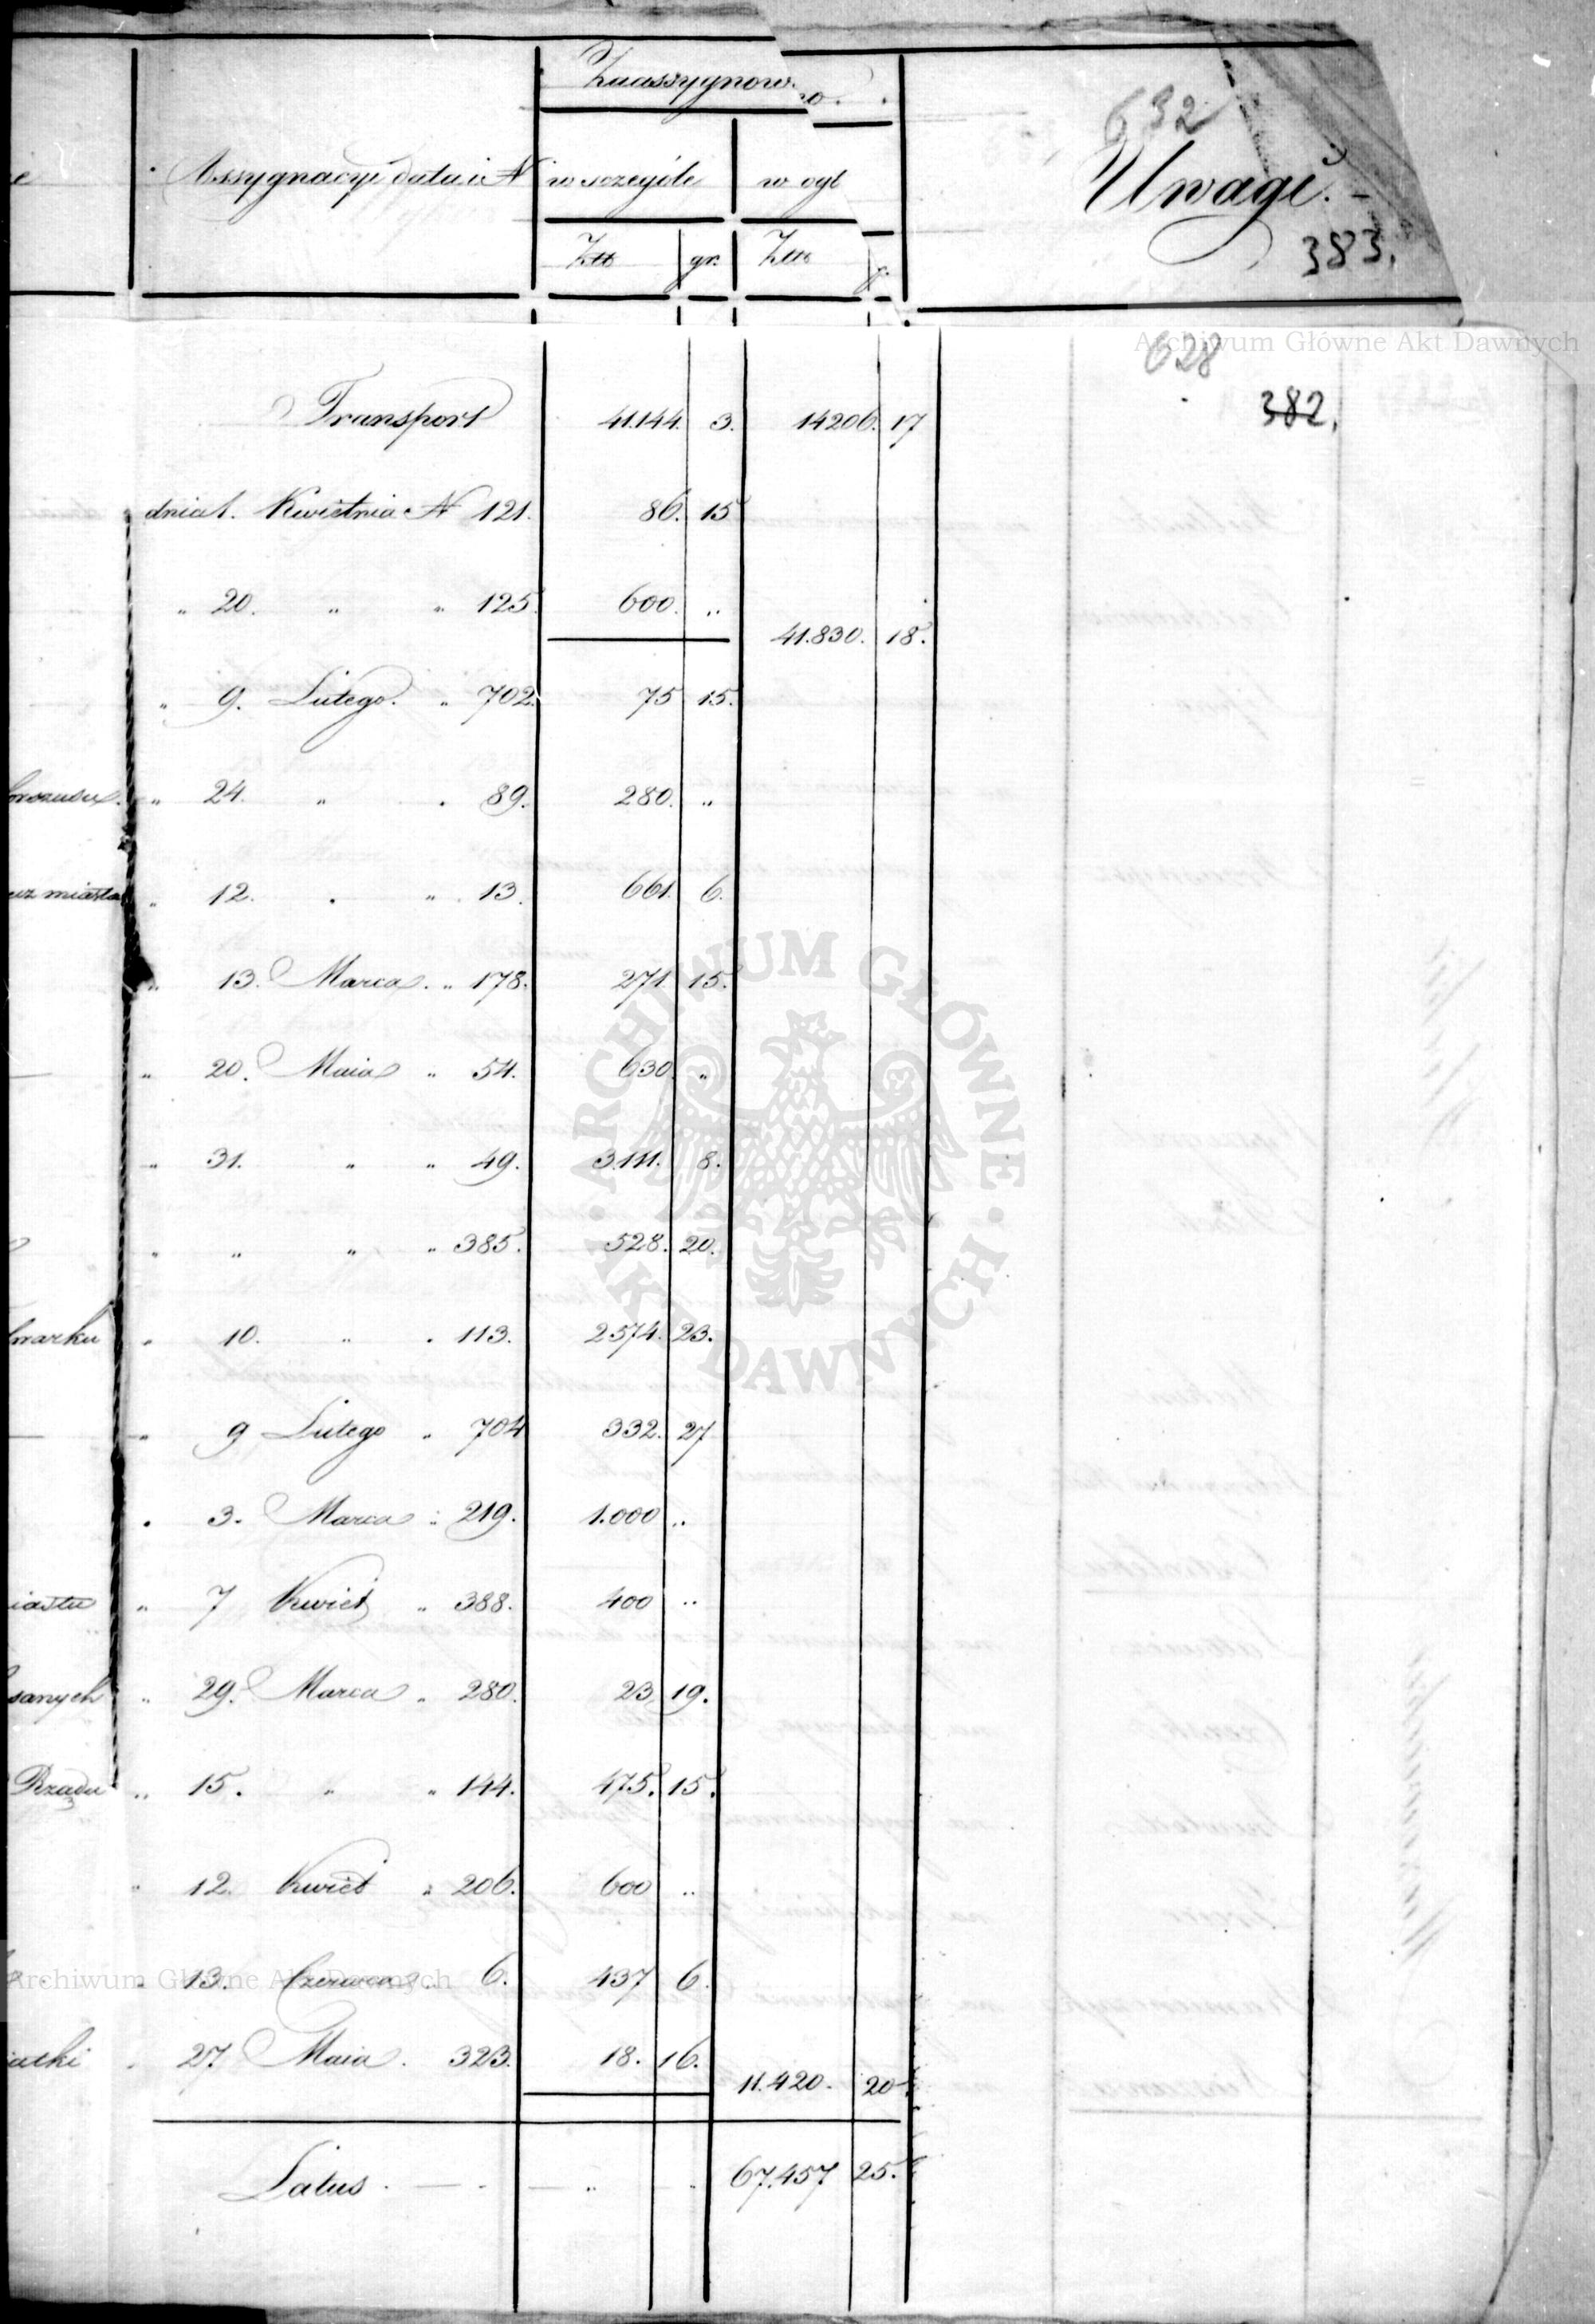 Zaassygnow no.
Assygnacyi data i N w szczególe w ogł
Złł gr. Złł g.
632
Uwagi.
383.
Archiwum Główne Akt Dawnych
628
382.
Transport 41.144. 3. 14206. 17
dnia 1. Kwietnia N 121. 86. 15
" 20. " " 125. 600. "
41.830. 18.
" 9. Lutego. " 702. 75 15.
" 24. " " 89. 280. "
miasta " 12. " " 13. 661. 6.
" 13. Marca. " 178. 271. 15.
" 20. Maia " 54. 630. "
" 31. " " 49. 3.111. 8.
" " " " 385. 528. 20.
" 10. " " 113. 2574. 23.
" 9 Lutego " 704 332. 27
" 3. Marca " 219. 1.000 "
iastu " 7 Kwiet " 388. 400 "
sanych " 29. Marca " 280. 23 19.
Rządu " 15. " " 144. 475. 15.
" 12. Kwiet " 206. 600 "
" 13. Czerwca " 6. 437 6.
Archiwum Główne Akt Dawnych
iatki " 27 Maia. 323. 18. 16.
11.420. 20
Latus. — " 67.457 25.
ARCHIWUM GŁÓWNE · AKT DAWNYCH ·